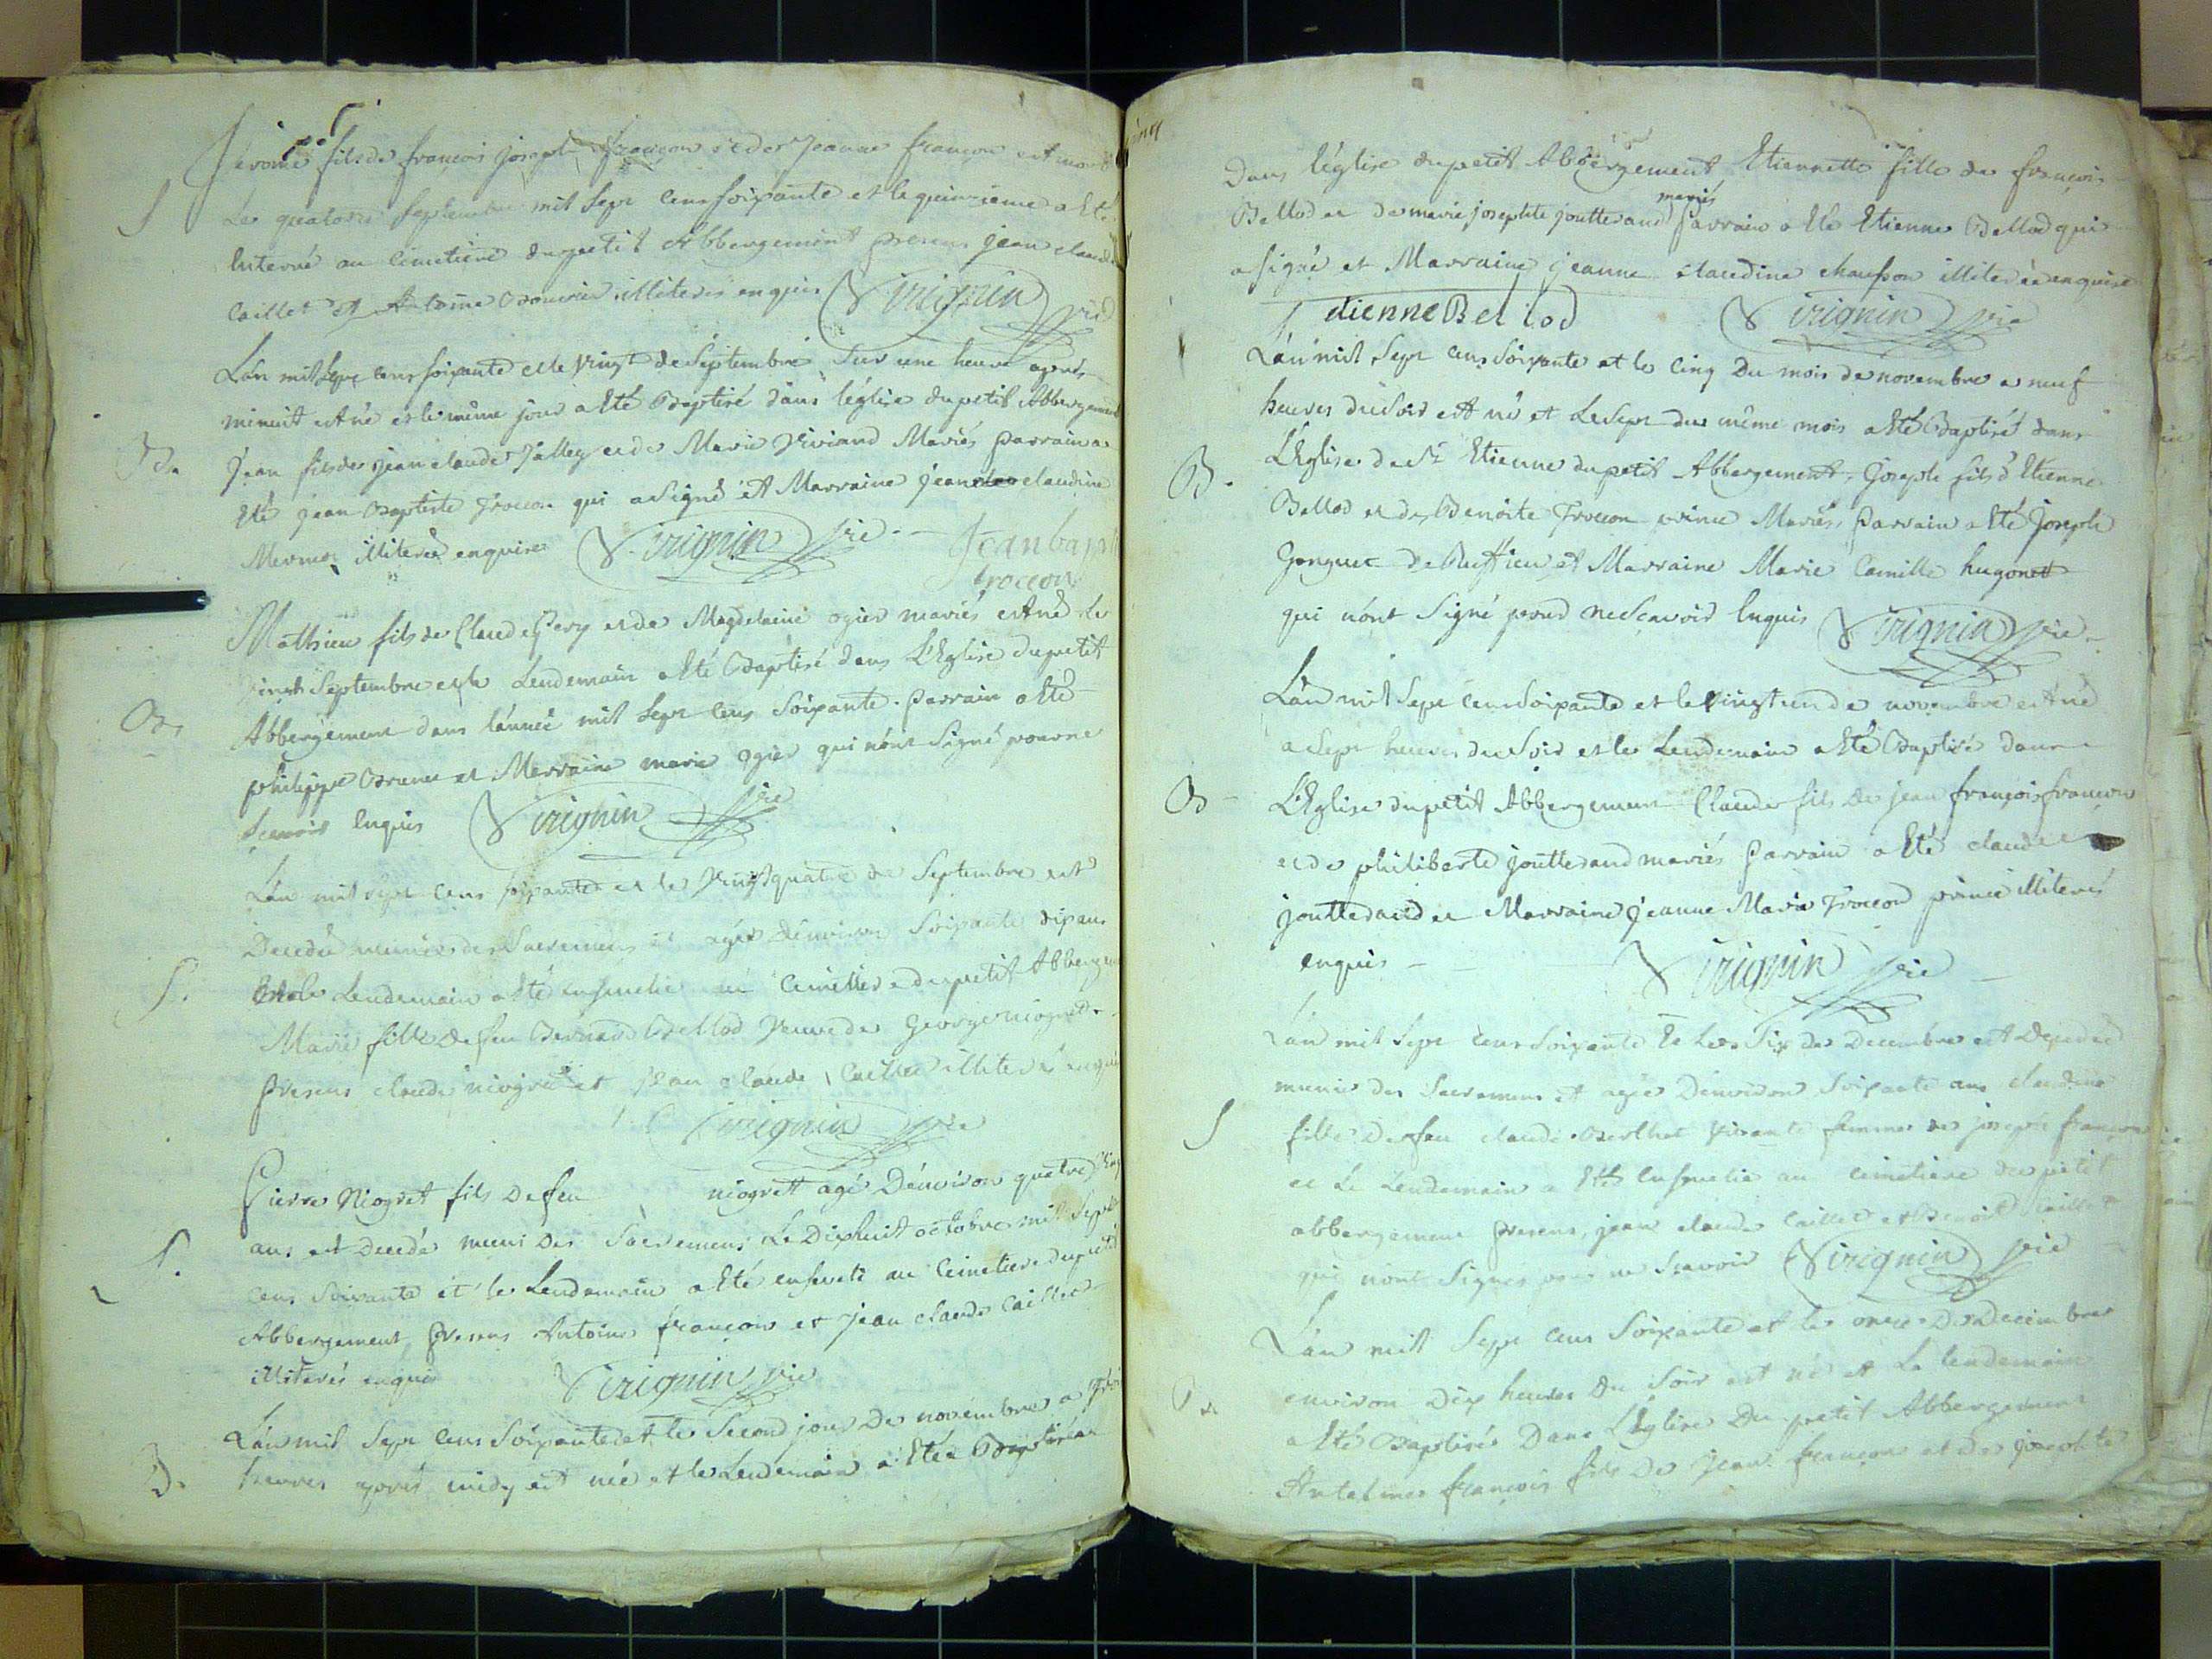 Jérome fils de françois joseph françon et de jeanne françon est mort
S Le quatorze Septembre mil Sept Cens soixante et le quinzieme a Eté
Enterré au Cimetiere du petit Abbergement presens jean claude
Caillet et Antoine illiterés enquis Virignin vic
L'an mil Sept Cens soixante et le vingt de Septembre Sur une heure après
minuit est né et le même jour a Eté Baptisé dans l'église du petit Abbergement
B. Jean fils de jean claude Jalley et de Marie Viviand Mariés parrain a
Eté jean Baptiste Trocon qui a Signé et Marraine jeanne claudine
Mermet illiterée enquise Virignin vic. Jean bapt
trocon
Mathieu fils de Claude Pery et de Magdelaine ogier mariés est né le
vingt Septembre et le Lendemain a Eté Baptisé dans L'Eglise du petit
B. Abbergement dans l'année mil Sept Cens Soixante. parrain a Eté
philippe Brunet et Marraine marie ogier qui n'ont Signé pour ne
Scavoir Enquis Virignin vic
L'an mil Sept Cens soixante et le vingt quatre de Septembre est
Decedée munie des Sacremens et agée d'environ Soixante dix ans
S. Et le Lendemain a Eté ensevelie au Cimetiere du petit Abbergement
Marie fille de feu Bernard Bellod Veuve de George niogret
presens claude niogret et Jean claude Caillet illiterés enquis
Virignin vic
Pierre Niogret fils de feu niogrett agé D'environ quatre vingt
S. ans est Decedé muni des Sacremens Le Dixhuit octobre mil Sept
Cens Soixante et le Lendemain a Eté enseveli au Cimetiere du petit
Abbergement, presens Antoine françon et jean claude Caillet
illiterés enquis Virignin vic
L'an mil Sept Cens Soixante et le Second jour de novembre a
B. heures après midy est née et le Lendemain a Eté Baptisée
Dans l'église du petit Abbergement Etiennette fille de françois
mariés
Bellod et de marie josephte joutterand parrain a Eté Etienne Bellod qui
a signé et Marraine jeanne claudine chanson illiterée enquise
Etienne Bellod Virignin vic
L'an mil Sept Cens Soixante et le Cinq Du mois de novembre a neuf
heures du Soir est né et Le Sept du même mois a Eté Baptisé dans
B. L'Eglise de St Etienne du petit Abbergement, joseph fils d'Etienne
Bellod et de Benoite Trocon prince Mariés, parrain a Eté joseph
Gonguet de Ruffieu et Marraine Marie Camille hugonet
qui n'ont Signé pour ne Scavoir Enquis Virignin vic.
L'an mil Sept Cens Soixante et le vingt un de novembre est né
a Sept heures du Soir et le Lendemain a Eté Baptisé dans
B L'Eglise du petit Abbergement Claude fils de jean françois françon
et de philiberte jouttérand mariés parrain a Eté claude
jouttérand et Marraine jeanne Marie Trocon prince illiterés
enquis Virignin vic
L'an mil Sept Cens Soixante Et Le Six de Decembre est Decedée
munie des Sacremens et agée D'environ Soixante ans claudine
S fille de feu claude Berthet Vivante femme de joseph françon
et Le Lendemain a Eté Ensevelie au Cimetiere du petit
abbergement presens, jean claude Caillet et Benoit Caillet
qui n'ont Signés pour ne Scavoir Virignin vic
L'an mil Sept Cens Soixante et le onze de Decembre
environ Dix heures du Soir est né et Le lendemain
B. a Eté Baptisé Dans L'Eglise Du petit Abbergement
Antelme françois fils De jean françon et de josephte